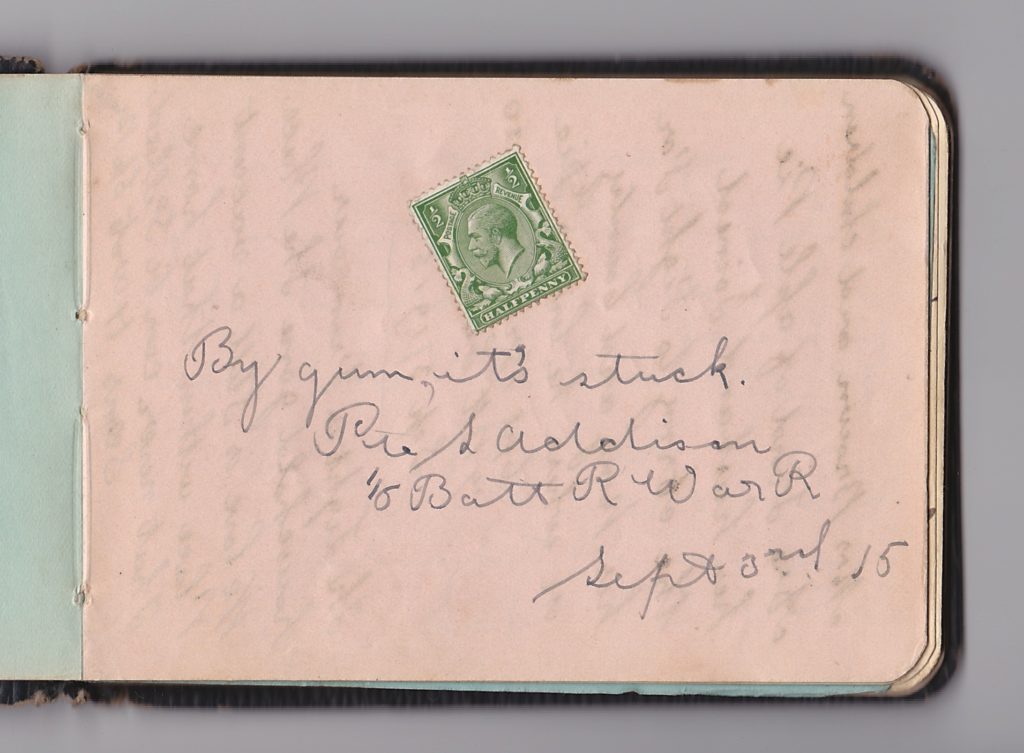 ½ ½
POSTAGE REVENUE
HALFPENNY
By gum, it's stuck.
Pte L Addison
Batt R War R
Sept 3rd 15